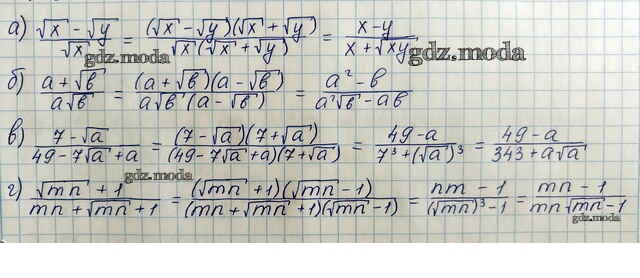 а) (√x - √y)/√x = ((√x - √y)(√x + √y))/(√x(√x + √y)) = (x - y)/(x + √xy)
gdz.moda gdz.moda
б) (a + √b)/(a√b) = ((a + √b)(a - √b))/(a√b(a - √b)) = (a² - b)/(a²√b - ab)
в) (7 - √a)/(49 - 7√a + a) = ((7 - √a)(7 + √a))/((49 - 7√a + a)(7 + √a)) = (49 - a)/(7³ + (√a)³) = (49 - a)/(343 + a√a)
gdz.moda
г) (√mn + 1)/(mn + √mn + 1) = ((√mn + 1)(√mn - 1))/((mn + √mn + 1)(√mn - 1)) = (nm - 1)/((√mn)³ - 1) = (mn - 1)/(mn√mn - 1)
gdz.moda